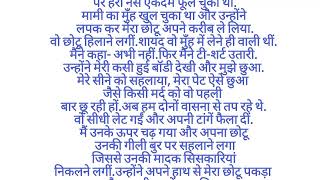 पर हरी नसें एकदम फूल चुकी थी.
मामी का मुँह खुल चुका था और उन्होंने
लपक कर मेरा छोटू अपने करीब ले लिया.
वो छोटू हिलाने लगीं.शायद वो मुँह में लेने ही वाली थीं.
मैंने कहा- अभी नहीं.फिर मैंने टी-शर्ट उतारी.
उन्होंने मेरी कसी हुई बॉडी देखी और मुझे छुआ.
मेरे सीने को सहलाया, मेरा पेट ऐसे छुआ
जैसे किसी मर्द को वो पहली
बार छू रही हों.अब हम दोनों वासना से तप रहे थे.
वो सीधी लेट गईं और अपनी टांगें फैला दीं.
मैं उनके ऊपर चढ़ गया और अपना छोटू
उनकी गीली बुर पर सहलाने लगा
जिससे उनकी मादक सिसकारियां
निकलने लगीं.उन्होंने अपने हाथ से मेरा छोटू पकड़ा